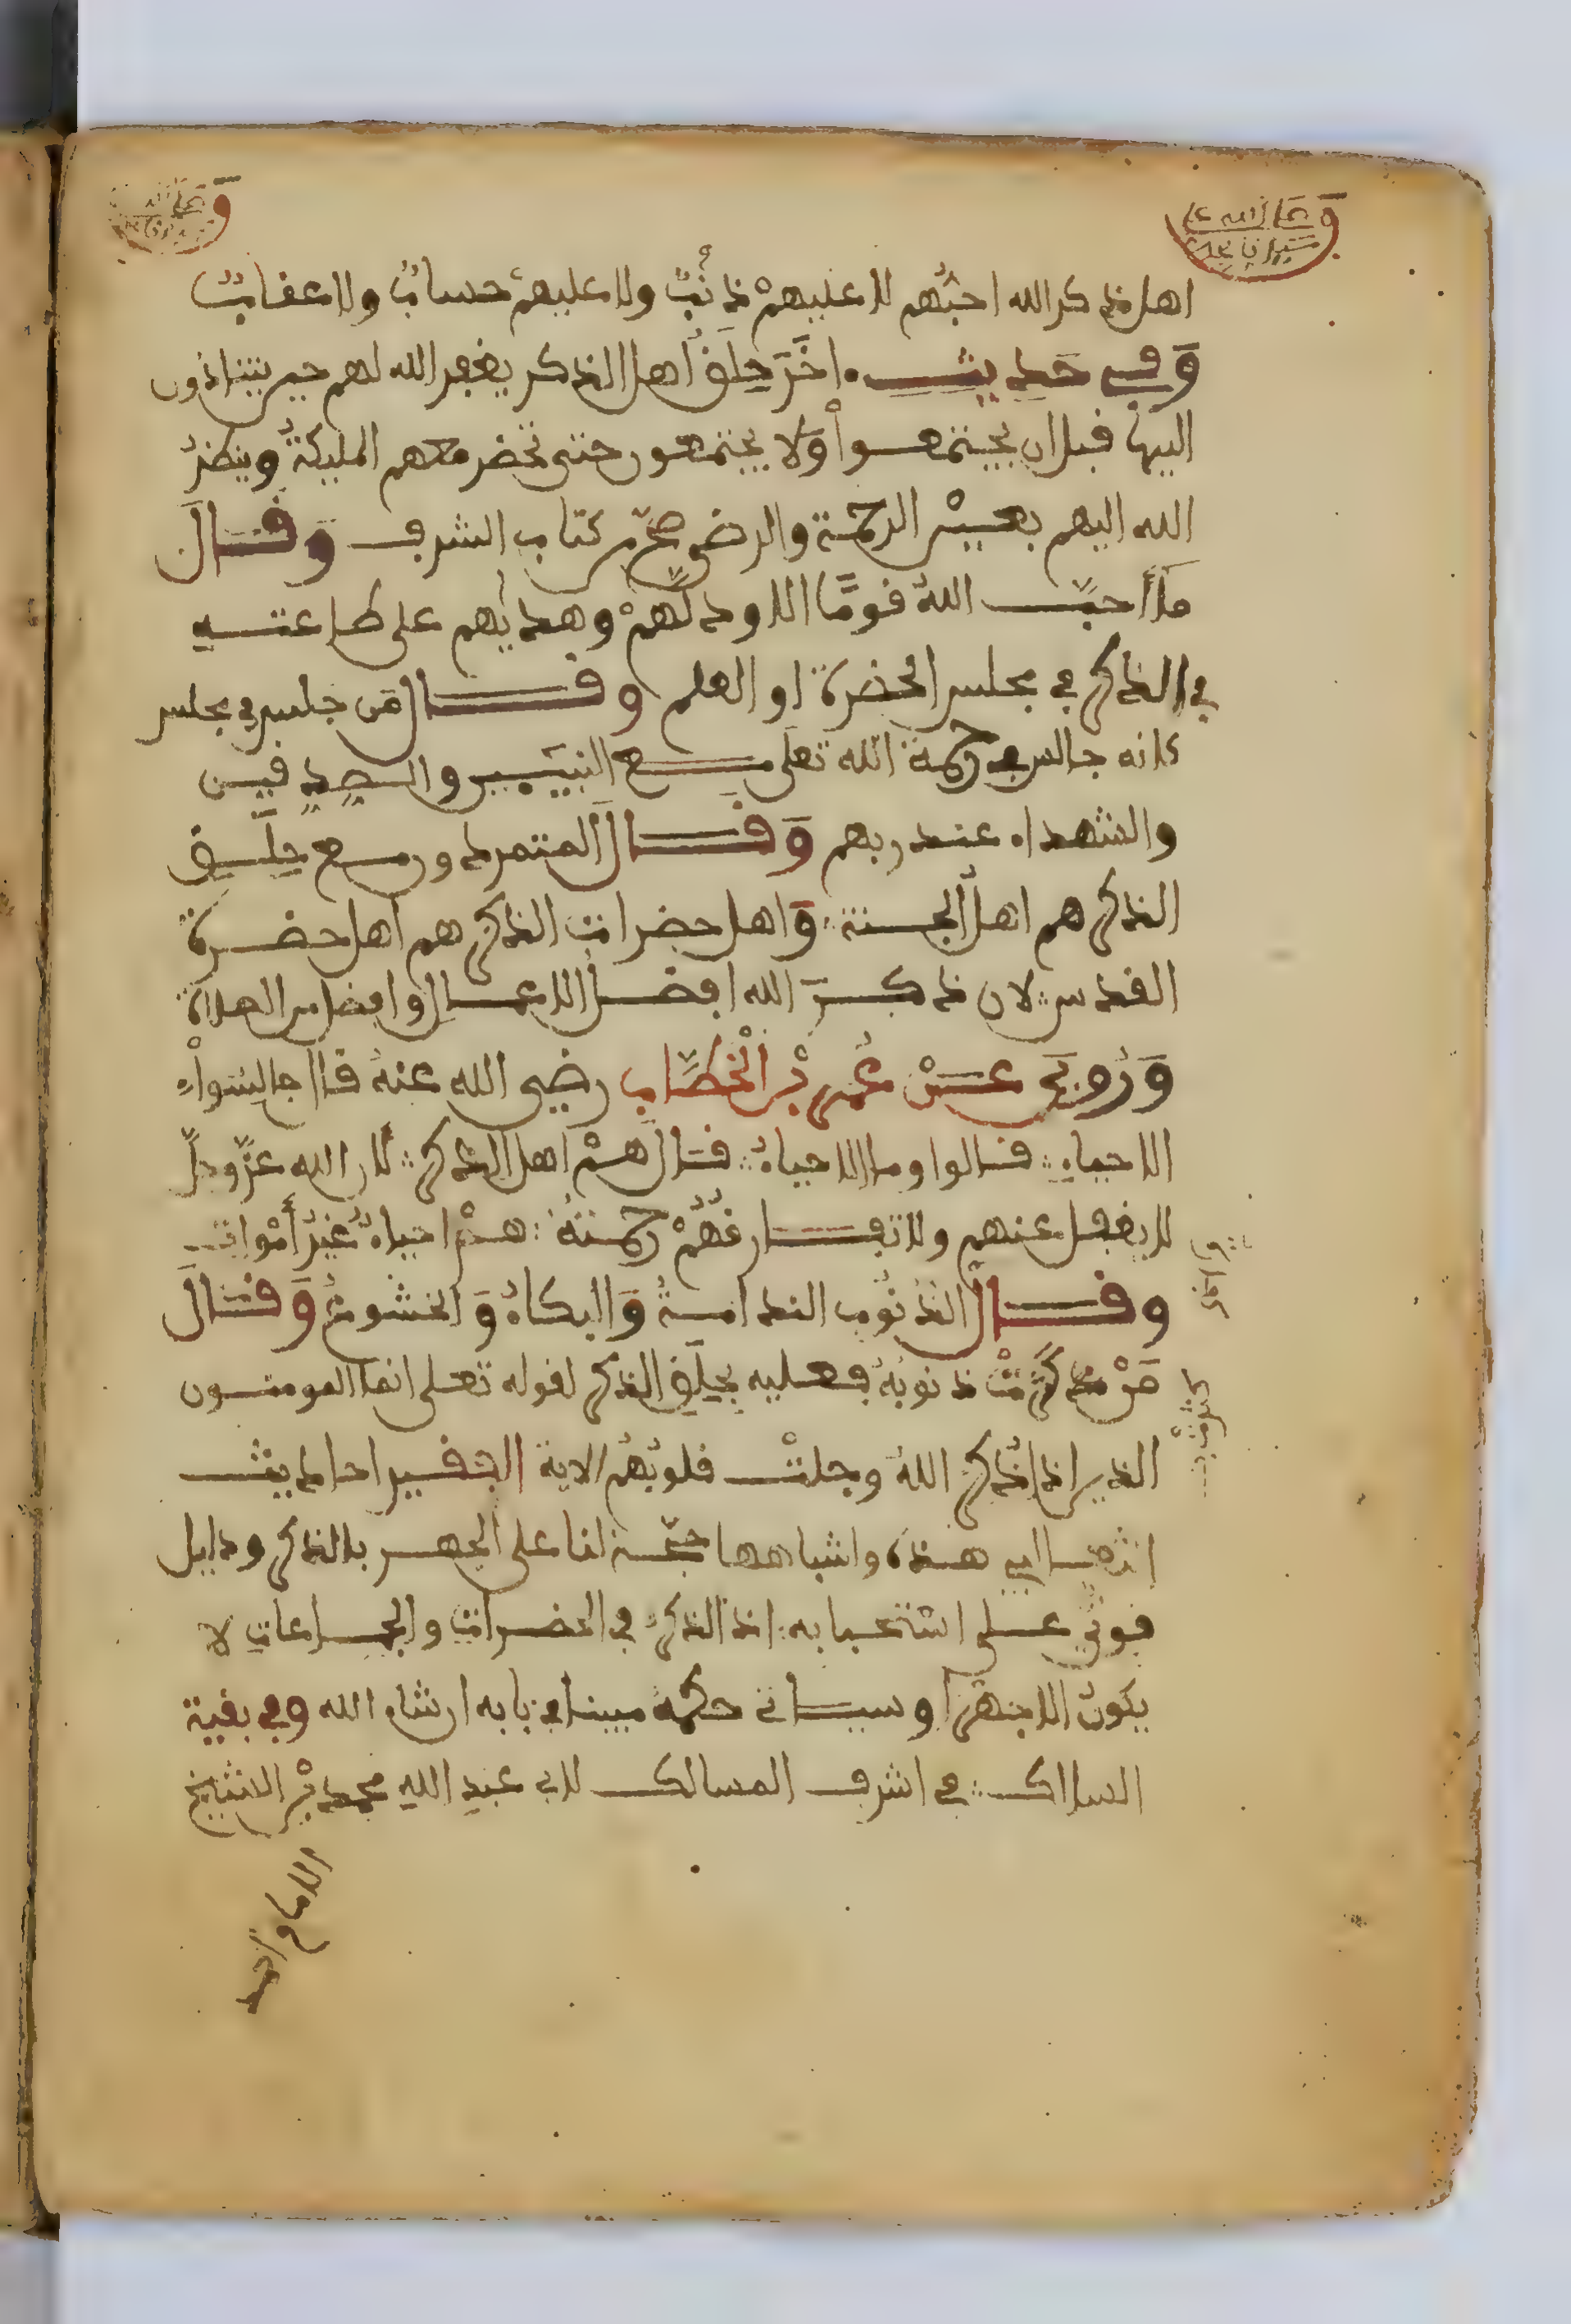 اهل ذكر الله احبُّهم لا عليهمْ ذنْبٌ ولا عليهمْ حسابٌ ولا عقابٌ
وَفي حَديثٍ اخَرَ حِلَقُ اهل الذكر يغفر الله لهم حين يتنادون
اليها قبل ان يجتمعوا وَلا يجتمعون حتى تحضر معهم المليكةُ وينظرُ
الله اليهم بعيْن الرحمة والرضى صحّ من كتاب الشرف وقال
مَا أحبَّ اللهُ قومًا الا ودلَّهمْ وهديهم على طاعته
في الذكر في مجلس الحضرة او العلم وقال مَن جلس في مجلس
كانه جالس في رحمة الله تعلى مع النبيّين والصديقين
والشهداء عند ربهم وَقال المتمردون مع حِلَق
الذكر هم اهل الجنة وَاهل حضرات الذكر هم اهل حضرة
القدس لان ذكرَ الله افضل الاعمال وافضل من الصلاة
وَرُوِيَ عَنْ عُمر بْن الْخطَّاب رضي الله عنهُ قال جالِسُواْ
الاحياء قالوا وما الاحياءُ قال همْ اهل الذكر لان الله عزَّ وجلَّ
لا يغفل عنهم ولا تفارقُهُمْ رحمتهُ همْ احياءٌ غيرُ أمْوات
وقال الذنُوب الندامةُ وَالبكاءُ وَالخشوعُ وَقال
مَنْ كثرتْ ذنوبُهُ فعليه بحِلَق الذكر لقوله تعلى انما المومنون
الذين اذا ذُكر اللهُ وجلتْ قلوبُهُم الاية الفقير احاديث
هذه واشباهها حجّة لنا على الجهر بالذكر ودليل
قويّ على استحبابه اذ الذكرُ في الحضرات والجماعات لا
يكونُ الا جهْرا وسياتى حكمهُ مبينا في بابه ان شاء الله وفي بقية
السلاك في اشرف المسالك لابى عبدِ اللهِ محمد بْن الشيخ
الامام احمد